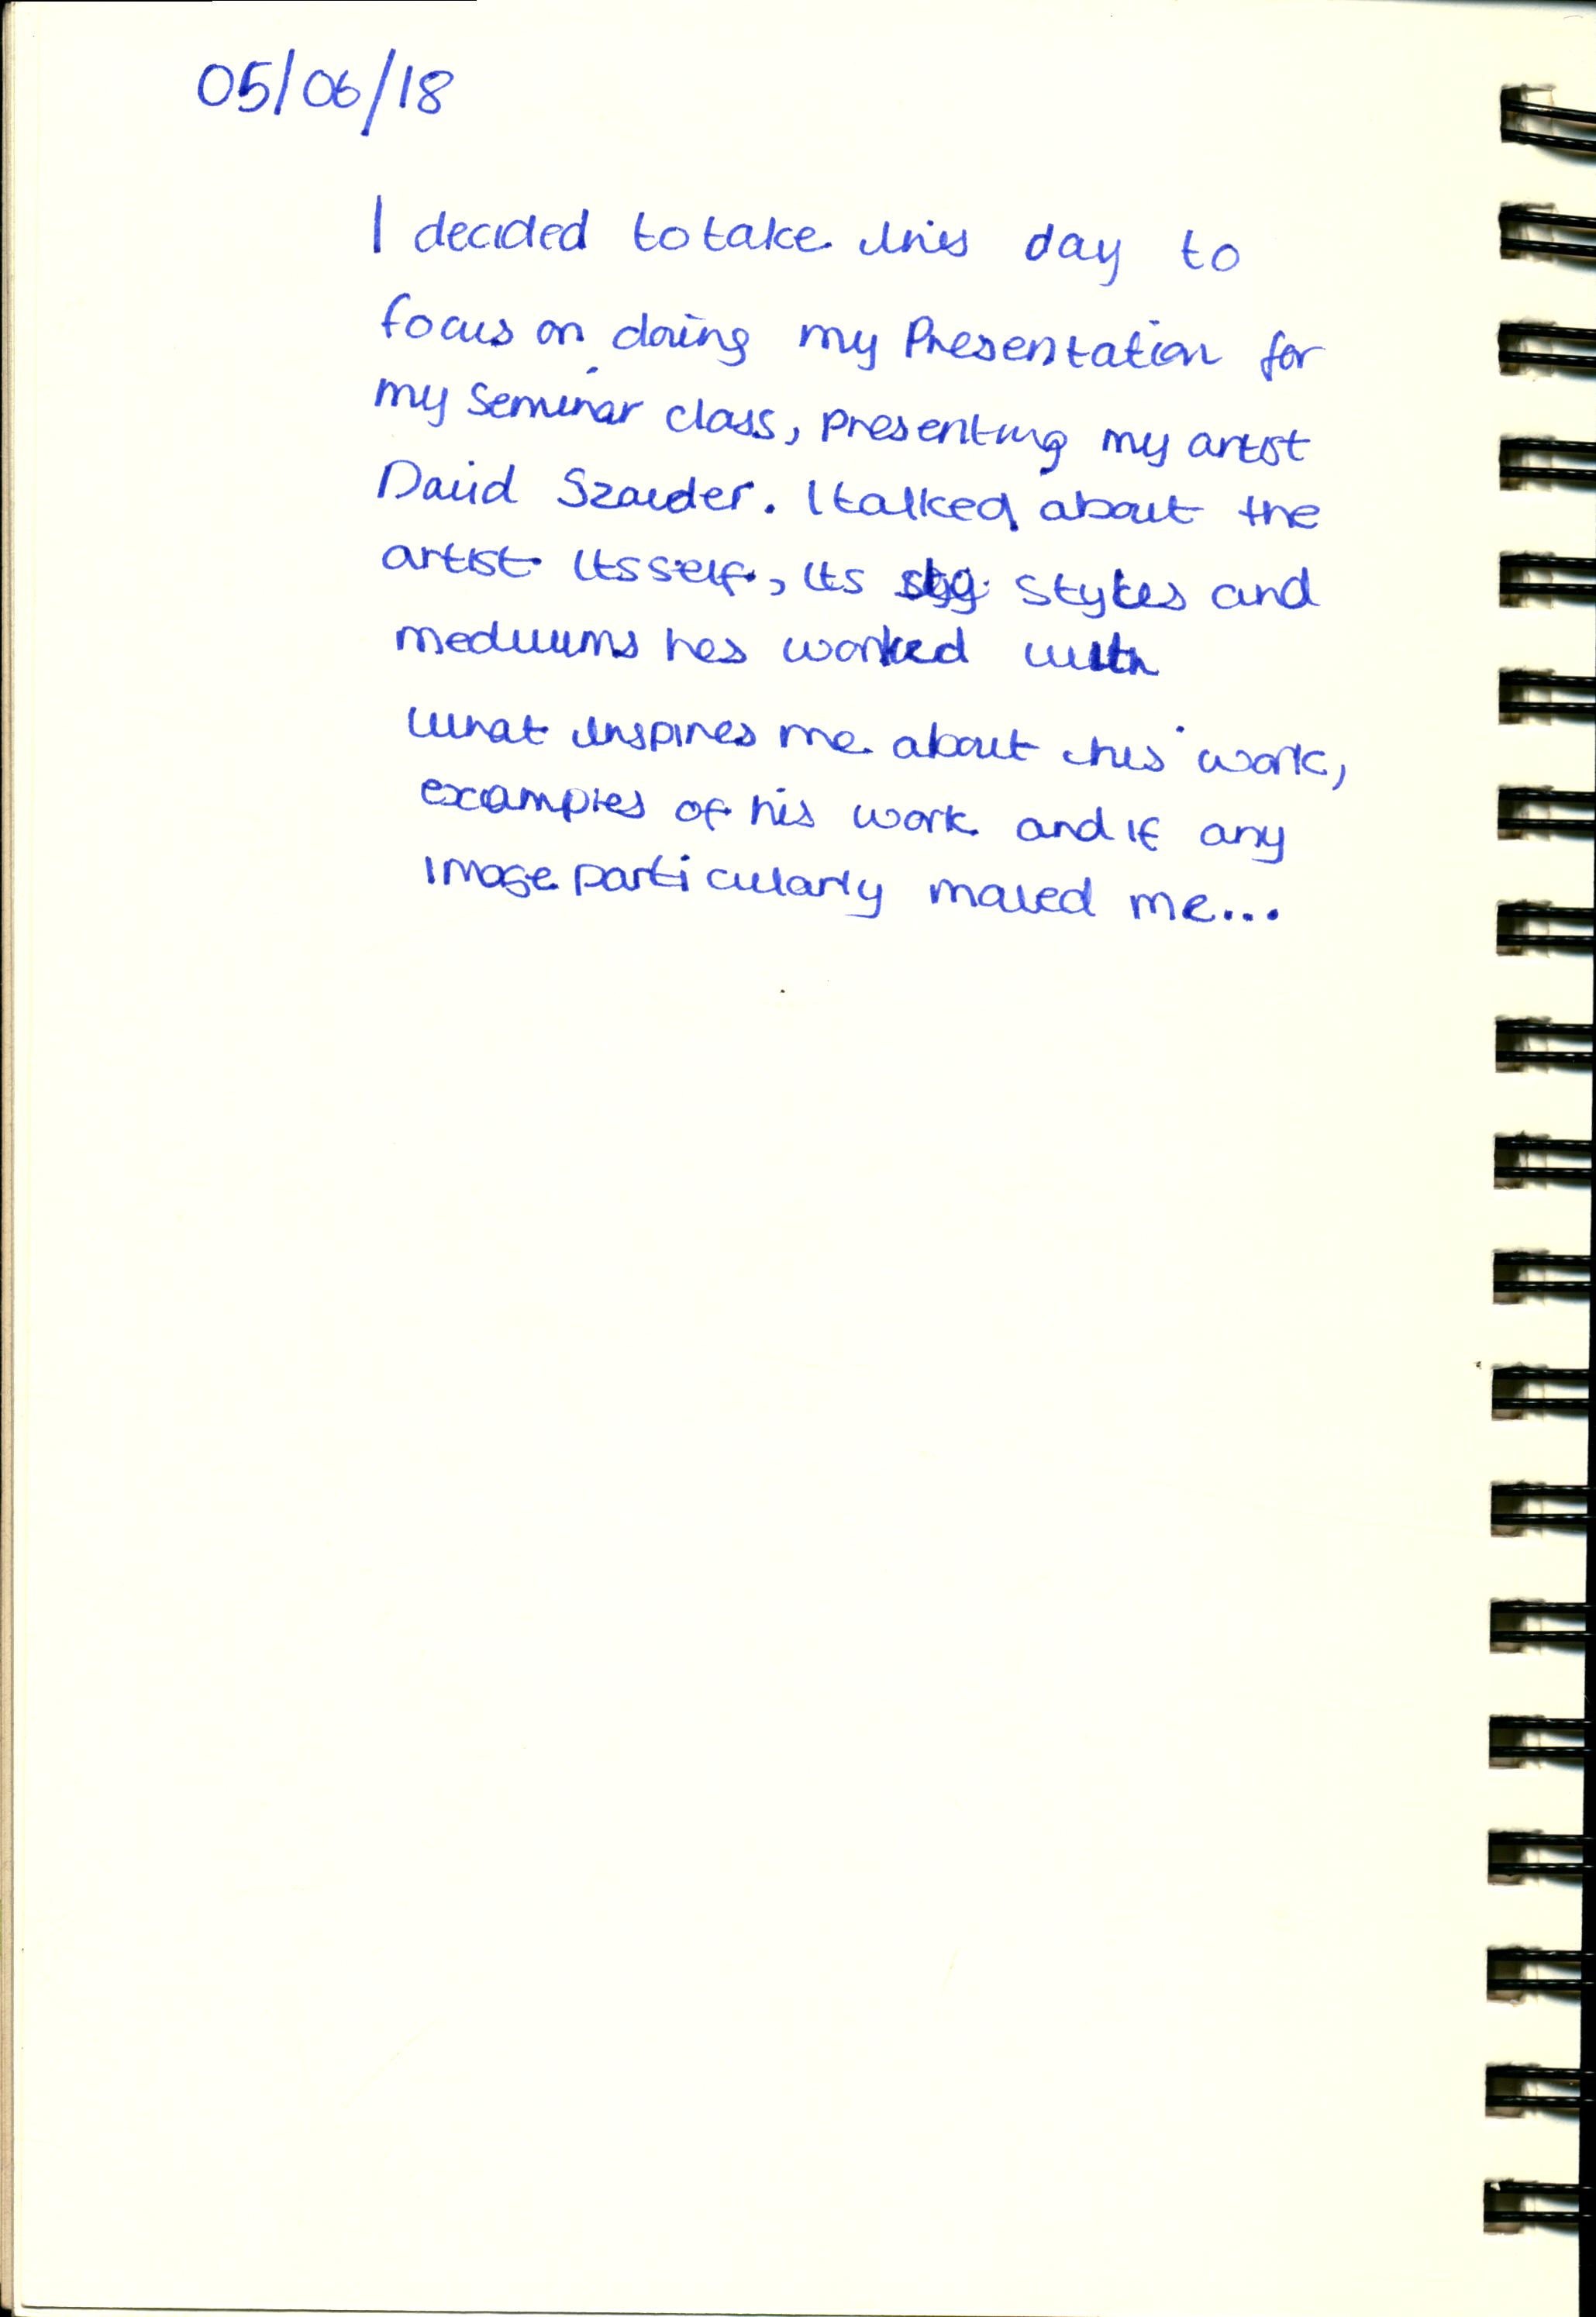 05/06/18
I decided to take this day to
focus on doing my Presentation for
my Seminar class, presenting my artist
David Szauder. I talked about the
artist itsself, its styles and
mediums hes worked with
what inspires me about this work,
examples of his work and if any
image particularly moved me...